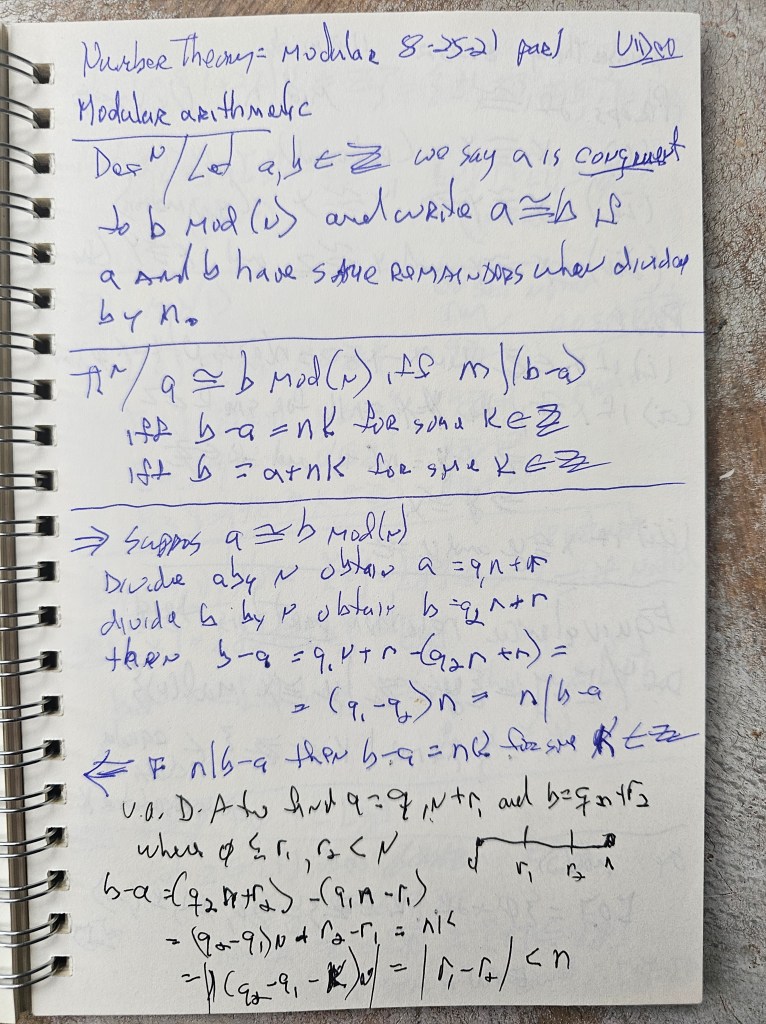 Number Theory = Modular 8-25-21 part VIDEO
Modular arithmetic
Def^N / Let a, b ∈ ℤ we say a is congruent
to b mod (N) and write a ≅ b if
a AND b have same REMAINDERS when divided
by n.
π^N / a ≅ b mod (N) iff n | (b-a)
iff b-a = nk for some k ∈ ℤ
iff b = a+nk for some k ∈ ℤ
⇒ Suppos a ≅ b mod (N)
Divide a by N obtain a = q₁n+r
divide b by N obtain b = q₂n+r
then b-a = q₁n+r -(q₂n+r) =
= (q₁-q₂)n = n|b-a
⇐ If n|b-a then b-a = nk for some k ∈ ℤ
U.a. D.A to find a = q₁N+r₁ and b = q₂n+r₂
where ϕ ≤ r₁, r₂ < N
r₁ r₂ n
b-a = (q₂n+r₂) -(q₁n-r₁)
= (q₂-q₁)n + r₂-r₁ = nk
= |(q₂-q₁-k)n| = |r₁-r₂| < n